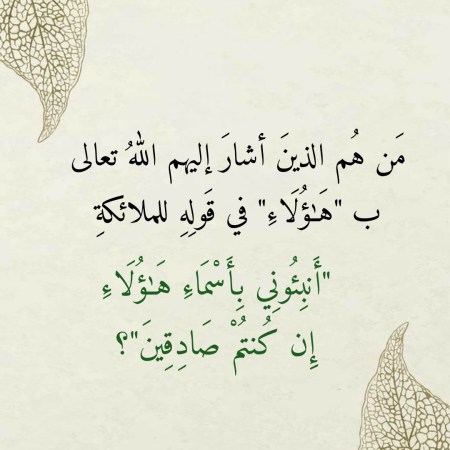 مَن هُم الذينَ أشارَ إليهم اللهُ تعالى
ب "هَـٰؤُلَاءِ" في قَولِهِ للملائكةِ
"أَنبِئُونِي بِأَسْمَاءِ هَـٰؤُلَاءِ
إِن كُنتُمْ صَادِقِينَ"؟